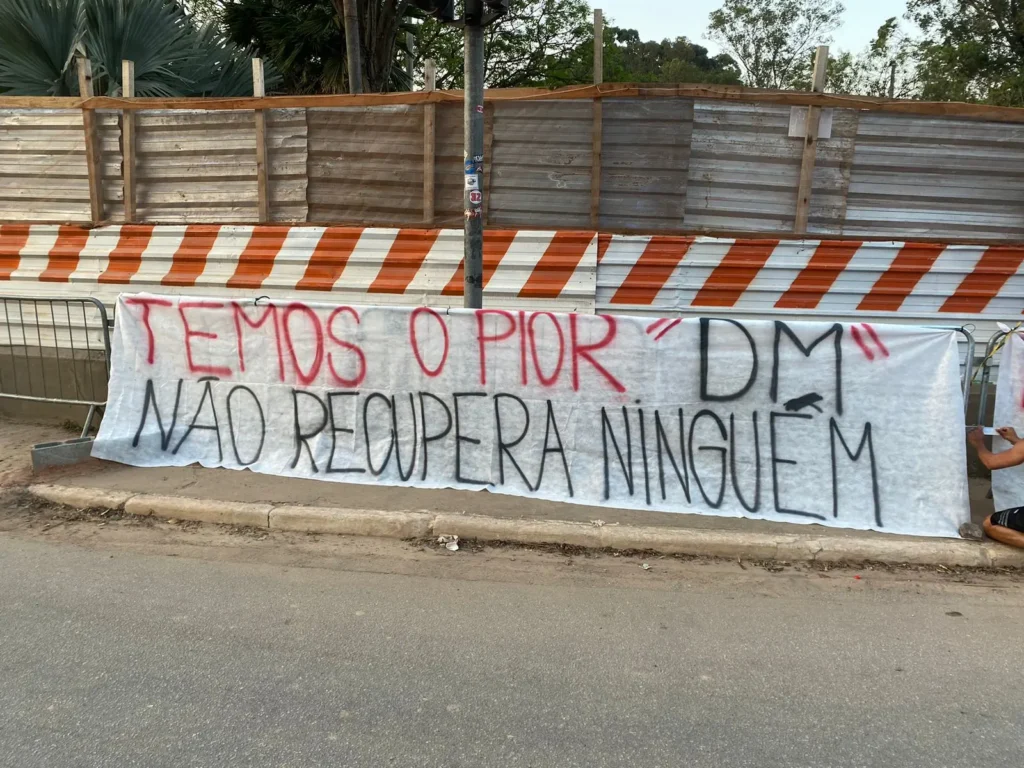 TEMOS O PIOR "DM"
NÃO RECUPERA NINGUÉM